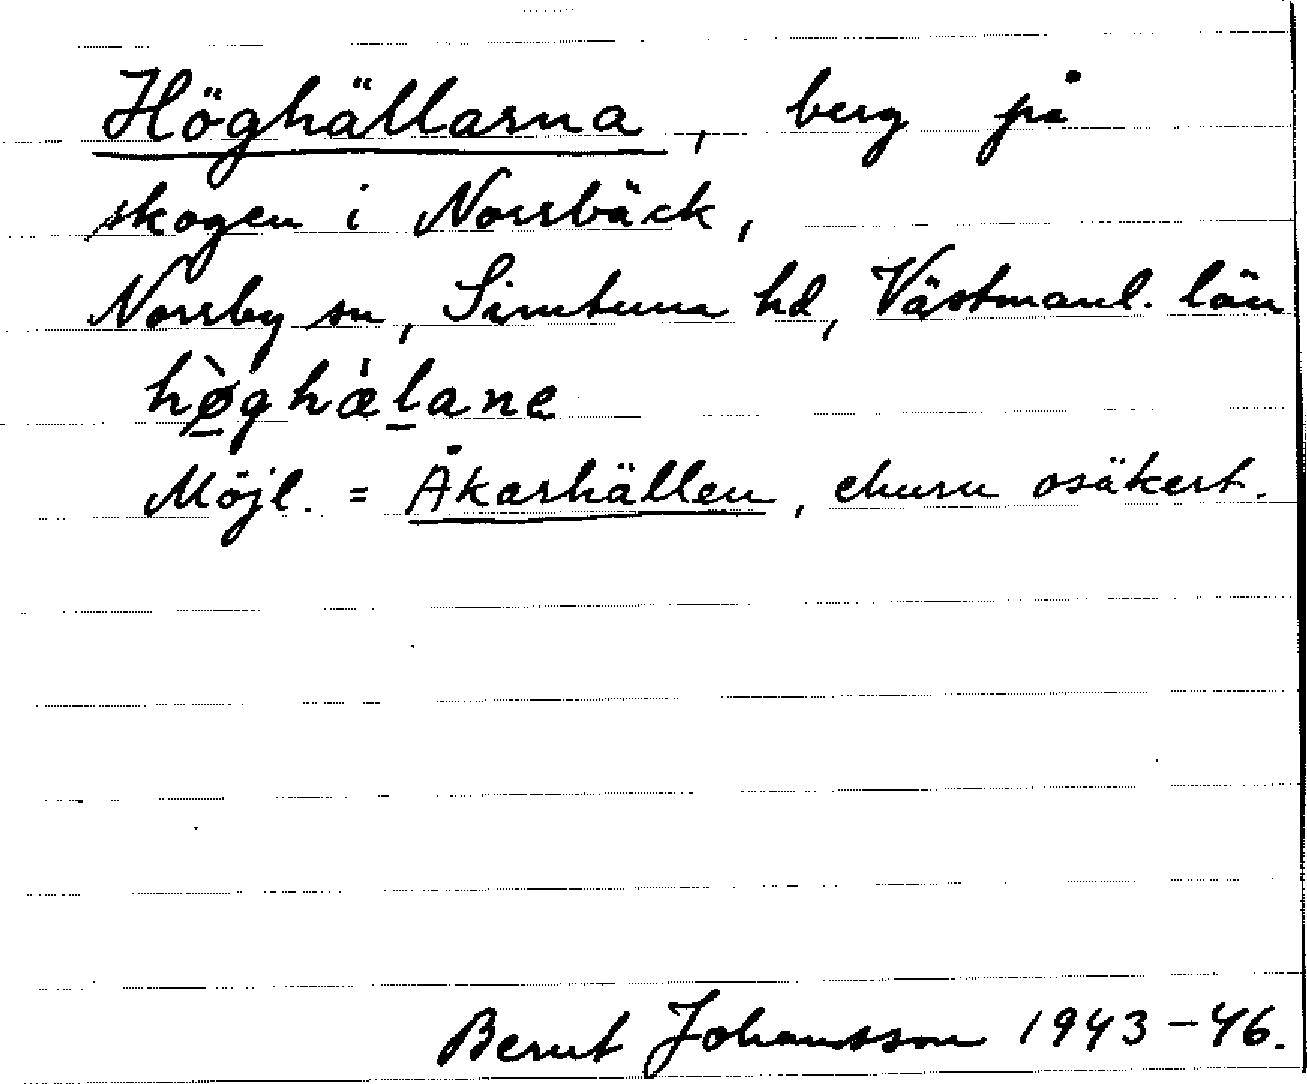 Höghällarna, berg på
skogen i Norrbäck,
Norrby sn, Simtuna hd, Västmanl. län
hø̀ghæ̀lane
Möjl. = Åkarhällen, ehuru osäkert.
Bernt Johansson 1943-46.